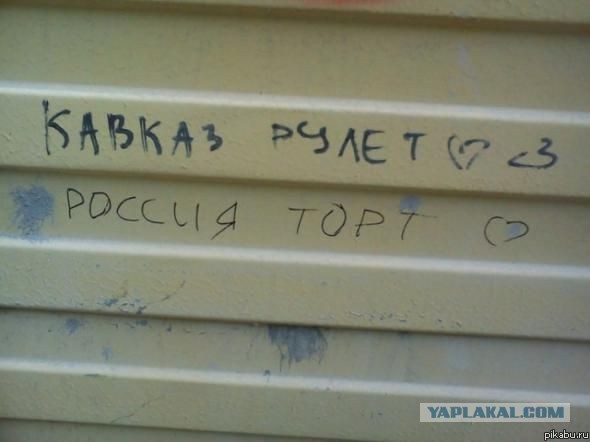 КАВКАЗ РУЛЕТ ♡ <3
РОССИЯ ТОРТ ♡
YAPLAKAL.COM
pikabu.ru